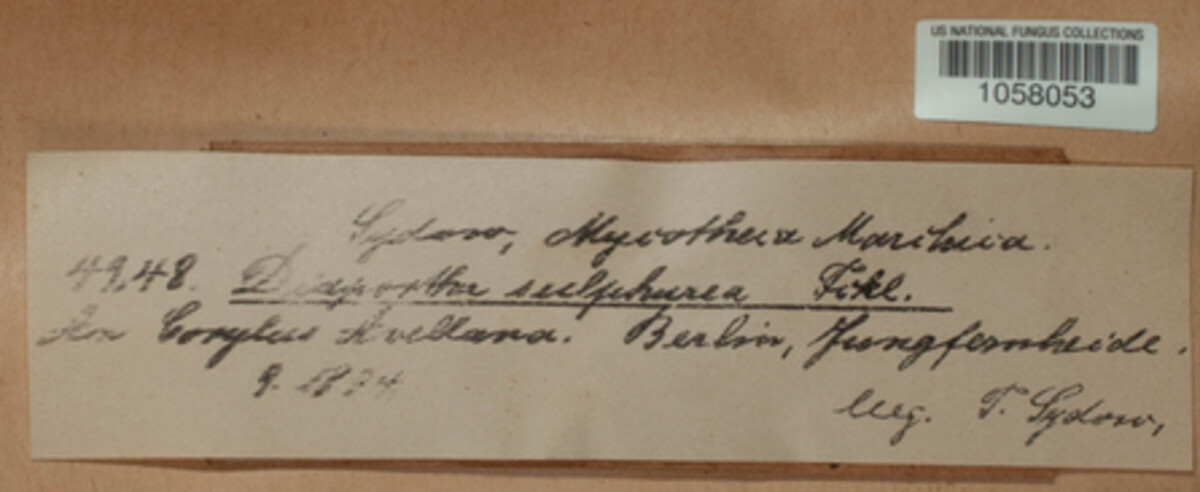 US NATIONAL FUNGUS COLLECTIONS
1058053
Sydow, Mycotheca Marchica.
4948. Diaporthe sulphurea Fckl.
Corylus Avellana. Berlin, Jungfernheide.
leg. P. Sydow,